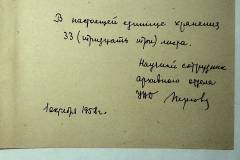 В настоящей единице хранения
33 (тридцать три) листа.
Научный сотрудник
архивного отдела
1 октября 1952 г.